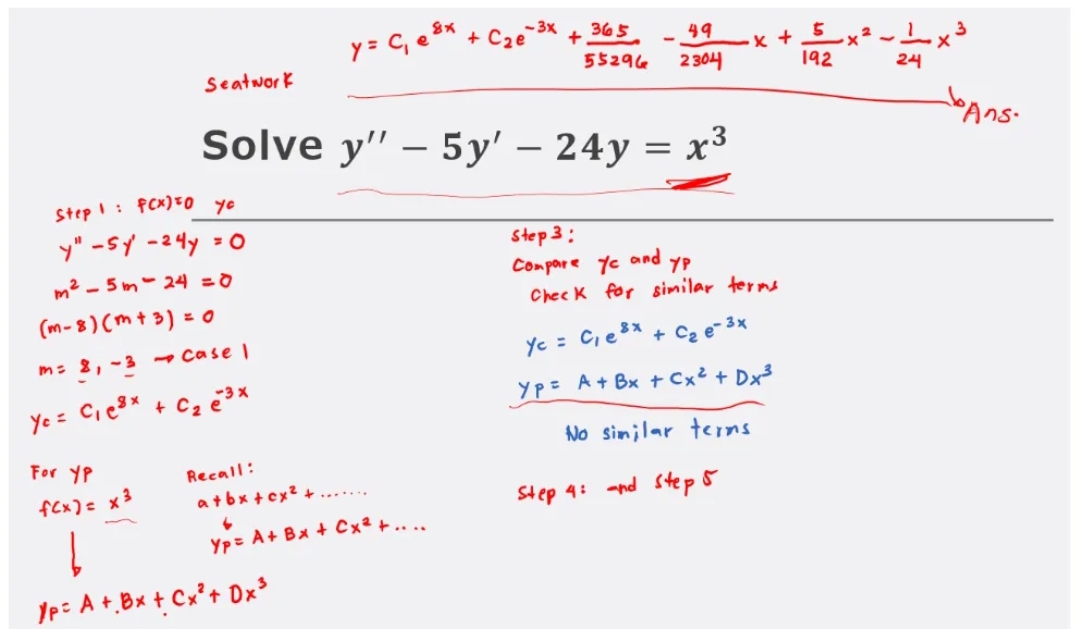 y = C₁ e^{8x} + C₂e^{-3x} + 365/55296 - 49/2304 x + 5/192 x² - 1/24 x³
Seatwork
Ans.
Solve y″ − 5y′ − 24y = x³
Step 1 : f(x)=0 yc
y" - 5y' - 24y = 0
m² - 5m - 24 = 0
(m-8)(m+3) = 0
m = 8, -3 → Case 1
yc = C₁e^{8x} + C₂ e^{-3x}
For yp
f(x) = x³
yp = A + Bx + Cx² + Dx³
Recall:
a+bx+cx² + .......
yp = A + Bx + Cx² + ....
Step 3:
Compare yc and yp
Check for similar terms
yc = C₁e^{8x} + C₂ e^{-3x}
yp = A + Bx + Cx² + Dx³
No similar terms
Step 4: and step 5